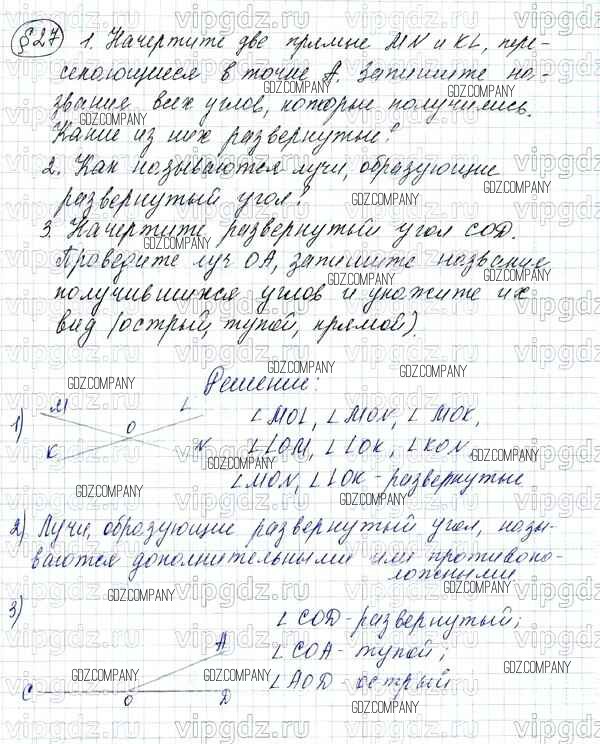 §27 1. Начертите две прямые MN и KL, пере-
секающиеся в точке А. Запишите на-
звания всех углов, которые получились.
Какие из них развернутые?
2. Как называются лучи, образующие
развернутый угол?
3. Начертите развернутый угол COD.
Проведите луч OA, запишите название
получившихся углов и укажите их
вид (острый, тупой, прямой).
Решение:
1) M L O K N
∠MOL, ∠MON, ∠MOK,
∠LOM, ∠LOK, ∠KON.
∠MON, ∠LOK - развернутые
2) Лучи, образующие развернутый угол, назы-
ваются дополнительными или противопо-
ложными
3) A C O D
∠COD - развернутый;
∠COA - тупой;
∠AOD - острый
GDZ.COMPANY
vipgdz.ru